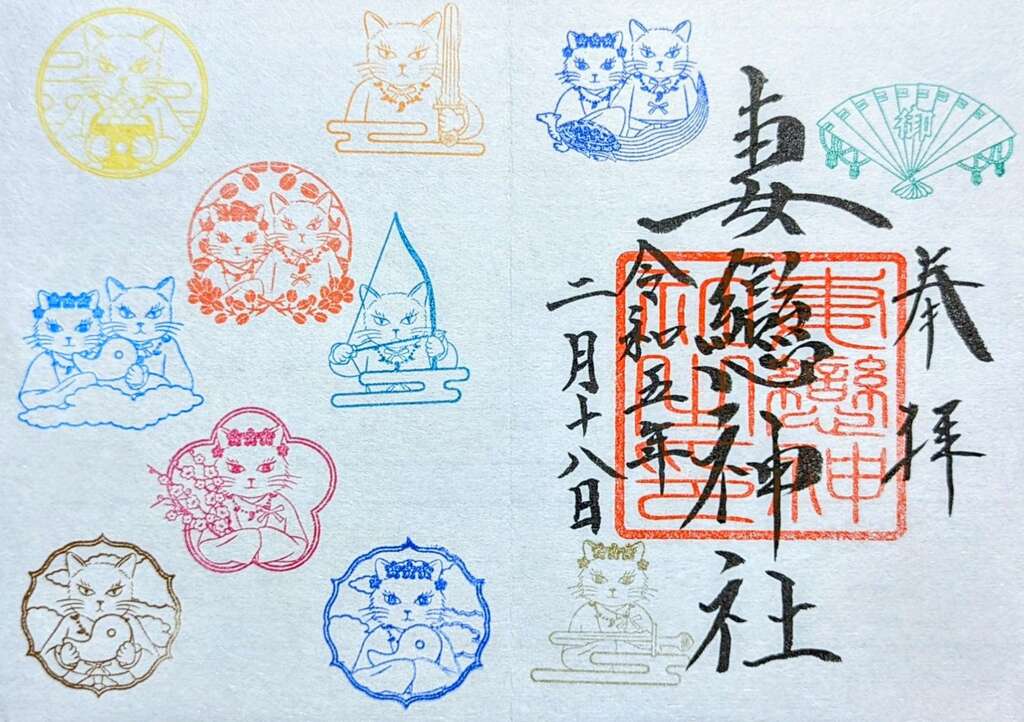 奉拝
妻戀神社
令和五年
二月十八日
御
妻戀神
社之印